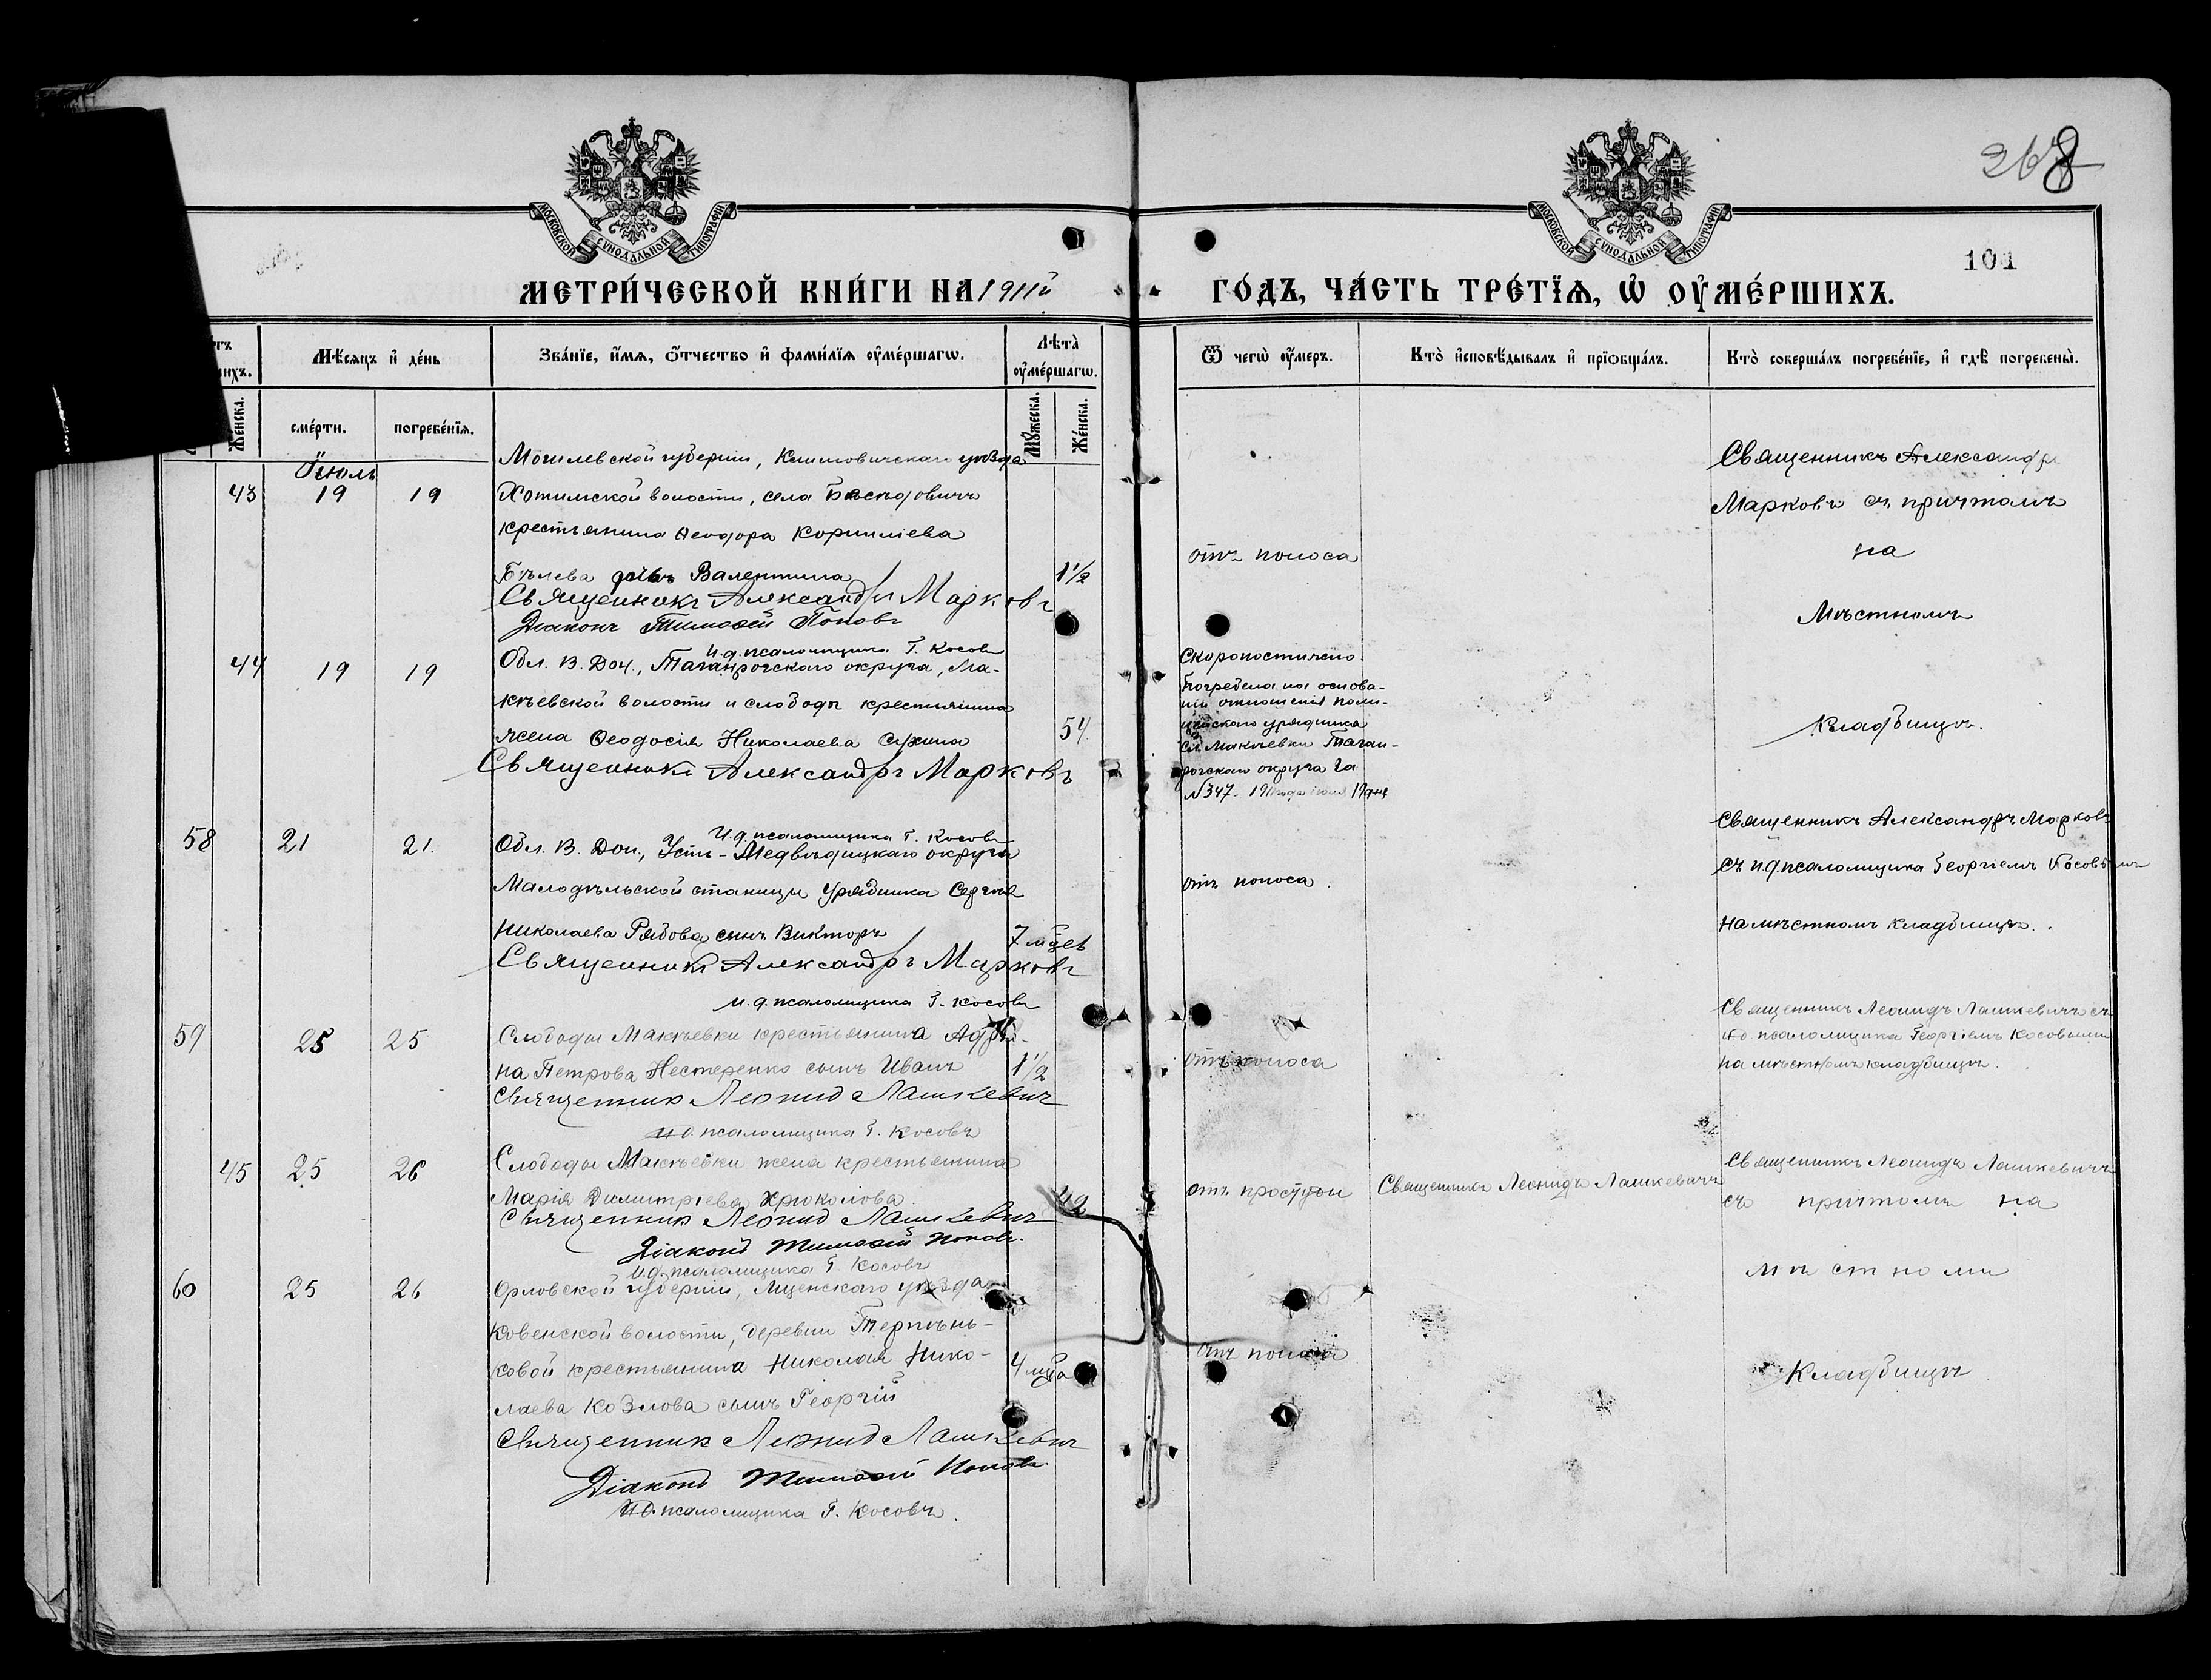 268
101
МОСКОВСКОЙ СУНОДАЛЬНОЙ ТИПОГРАФІИ
МОСКОВСКОЙ СУНОДАЛЬНОЙ ТИПОГРАФІИ
МЕТРИ́ЧЕСКОЙ КНИ́ГИ НА 1911й
ГО́ДЪ, ЧА́СТЬ ТРЕ́ТЇѦ, Ѡ҆ ОУ҆МЕ́РШИХЪ.
Мѣ́сѧцъ и҆ де́нь
Зва́нїе, и҆́мѧ, ѻ҆́тчество и҆ фами́лїѧ оу҆ме́ршагѡ.
Лѣ́та̀ оу҆ме́ршагѡ.
Ѿ чегѡ̀ оу҆́меръ.
Кто̀ и҆сповѣ́дывалъ и҆ прїѡбща́лъ.
Кто̀ соверша́лъ погребе́нїе, и҆ гдѣ̀ погребены̀.
Же́нска.
сме́рти.
погребе́нїѧ.
Мꙋ́жеска.
Же́нска.
Іюль
43 19 19
Могилевской губерніи, Климовичскаго уѣзда
Хотимской волости, села
крестьянина Ѳеодора Корниліева
Бѣлева дочь Валентина 1½
Священникъ Александръ Марковъ
Діаконъ Тимоѳей Поповъ
И.д. псаломщика Г. Косовъ
отъ поноса
Священникъ Александръ
Марковъ съ причтомъ
на
Мѣстномъ
44 19 19
Обл. В. Дон., Таганрогскаго округа, Ма-
кѣевской волости и слободы крестьянина
жена Ѳеодосія Николаева 54
Священникъ Александръ Марковъ
И.д. псаломщика Г. Косовъ
Скоропостижно
Погребена на основа-
ніи отношенія поли-
цейскаго урядника
сл. Макѣевки Таган-
рогскаго округа за
№347. 1911 года іюля 19 дня
Кладбищѣ.
58 21 21.
Обл. В. Дон., Усть-Медвѣдицкаго округа
Малодѣльской станицы урядника Сергѣя
Николаева Рябова сынъ Викторъ 7 мцев
Священникъ Александръ Марковъ
и.д. псаломщика Г. Косовъ
отъ поноса.
Священникъ Александръ Марковъ
съ и.д. псаломщика Георгіемъ Косовымъ
на мѣстномъ кладбищѣ.
59 25 25
Слободы Макѣевки крестьянина Адрі-
на Петрова Нестеренко сынъ Иванъ 1½
Священник Леонид Лашкевич
И.д. псаломщика Г. Косовъ
отъ поноса
Священникъ Леонидъ Лашкевичъ съ
и.д. псаломщика Георгіемъ Косовымъ
на мѣстномъ кладбищѣ.
45 25 26
Слободы Макѣевки жена крестьянина
Марія Димитріева Хрюколова
Священник Леонид Лашкевич
Діаконъ Тимоѳей Поповъ.
И.д. псаломщика Г. Косовъ
отъ простуды
Священникъ Леонидъ Лашкевичъ
Священникъ Леонидъ Лашкевичъ
съ причтомъ на
мѣстномъ
60 25 26
Орловской губерніи, Мценскаго уѣзда
волости, деревни Терпѣнь-
ковой крестьянина Николая Нико-
лаева Козлова сынъ Георгій 4 мца
Священник Леонид Лашкевич
Діаконъ Тимоѳей Поповъ
И.д. псаломщика Г. Косовъ.
отъ поноса
Кладбищѣ